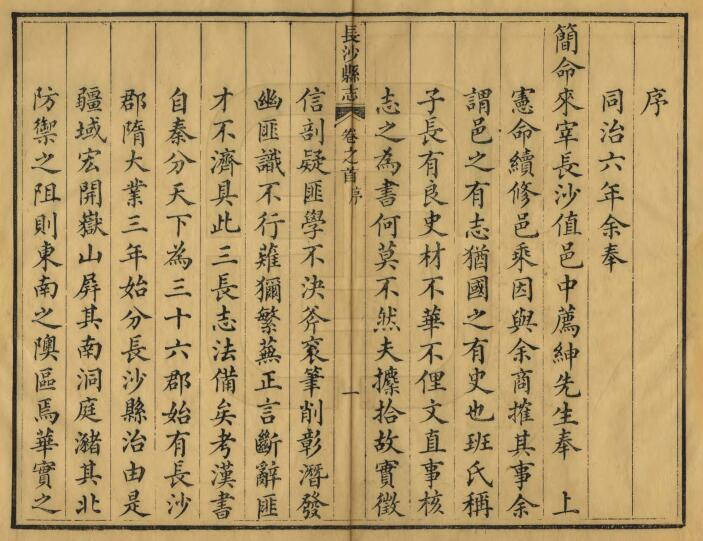 序
同治六年余奉
簡命來宰長沙值邑中薦紳先生奉 上
憲命續修邑乘因與余商搉其事余
謂邑之有志猶國之有史也班氏稱
子長有良史材不華不俚文直事核
志之為書何莫不然夫摭拾故實徵
長沙縣志 卷之首 序 一
信剖疑匪學不決斧袞筆削彰潛發
幽匪識不行薙獮繁蕪正言斷辭匪
才不濟具此三長志法備矣考漢書
自秦分天下為三十六郡始有長沙
郡隋大業三年始分長沙縣治由是
疆域宏開嶽山屏其南洞庭瀦其北
防禦之阻則東南之隩區焉華實之